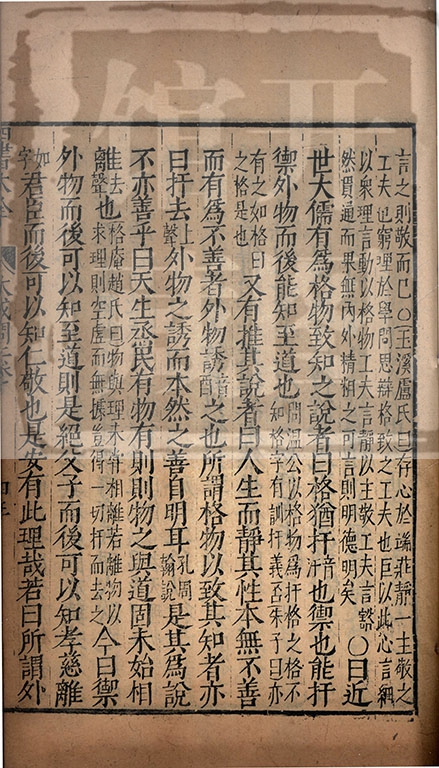 言之則敬而已○玉溪盧氏曰存心於端莊靜一主敬之
工夫也窮理於學問思辯格致之工夫也臣以此心言綱
以衆理言動以格物工夫言靜以主敬工夫言豁
然貫通而果無內外精粗之可言則明德明矣
○曰近
世大儒有爲格物致知之說者曰格猶扞音汗也禦也能扞
禦外物而後能知至道也問溫公以格物爲扞格之格不知格字有訓扞義否朱子曰亦
有之如格曰之格是也又有推其說者曰人生而靜其性本無不善
而有爲不善者外物誘音酉之也所謂格物以致其知者亦
曰扞去上聲外物之誘而本然之善自明耳孔周翰說是其爲說
不亦善乎曰天生烝民有物有則則物之與道固未始相
離去聲也格庵趙氏曰物與理未嘗相離若離物以求理則空虛而無據豈得一切扞而去之今曰禦
外物而後可以知至道則是絕父子而後可以知孝慈離
如字君臣而後可以知仁敬也是安有此理哉若曰所謂外